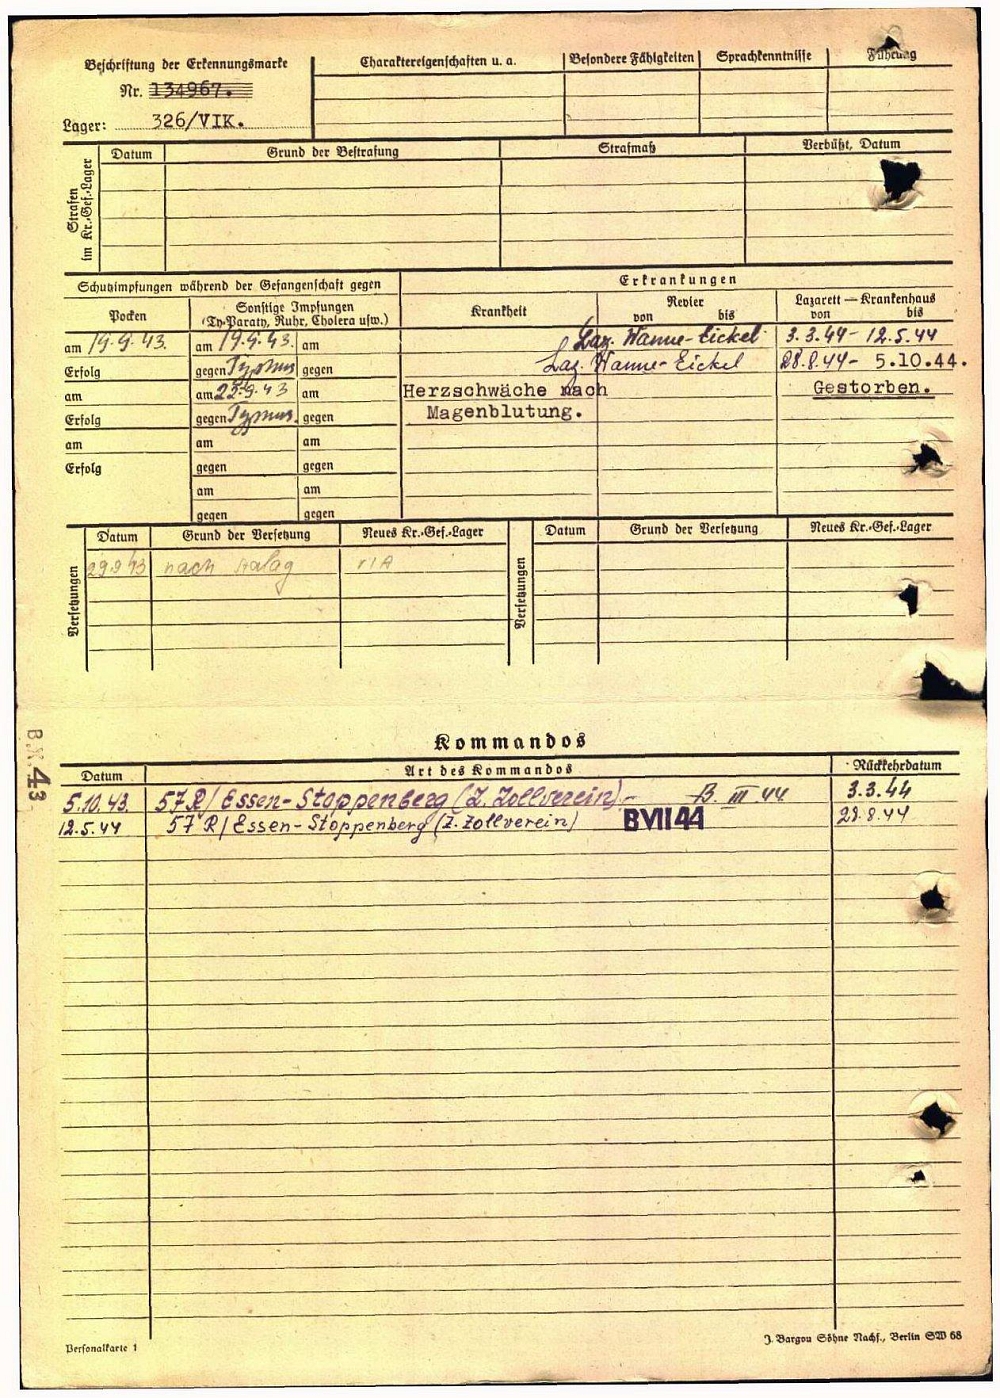 Beschriftung der Erkennungsmarke
Nr. 134967.
Lager: 326/VIK.
Charaktereigenschaften u. a.
Besondere Fähigkeiten
Sprachkenntnisse
Führung
Strafen im Kr.-Gef.-Lager
Datum
Grund der Bestrafung
Strafmaß
Verbüßt, Datum
Schutzimpfungen während der Gefangenschaft gegen
Erkrankungen
Pocken
Sonstige Impfungen
(Ty-Paraty, Ruhr, Cholera usw.)
Krankheit
Revier
von bis
Lazarett — Krankenhaus
von bis
am 19.9.43. am 19.9.43. am
Laz. Wanne-Eickel 3.3.44 - 12.5.44
Erfolg gegen Typhus gegen
Laz. Wanne-Eickel 28.8.44 - 5.10.44.
am am 22.9.43 am
Herzschwäche nach Gestorben.
Erfolg gegen Typhus. gegen
Magenblutung.
am am am
Erfolg gegen gegen
am am
gegen gegen
Versetzungen
Datum
Grund der Versetzung
Neues Kr.-Gef.-Lager
29.9.43 nach Stalag VIA
Versetzungen
Datum
Grund der Versetzung
Neues Kr.-Gef.-Lager
B.K.43
Kommandos
Datum
Art des Kommandos
Rückkehrdatum
5.10.43. 57 R/Essen-Stoppenberg (Z. Zollverein) - B. III 44 3.3.44
12.5.44 57 R/Essen-Stoppenberg (Z. Zollverein) BVII44 28.8.44
Personalkarte 1
J. Bargou Söhne Nachf., Berlin SW 68